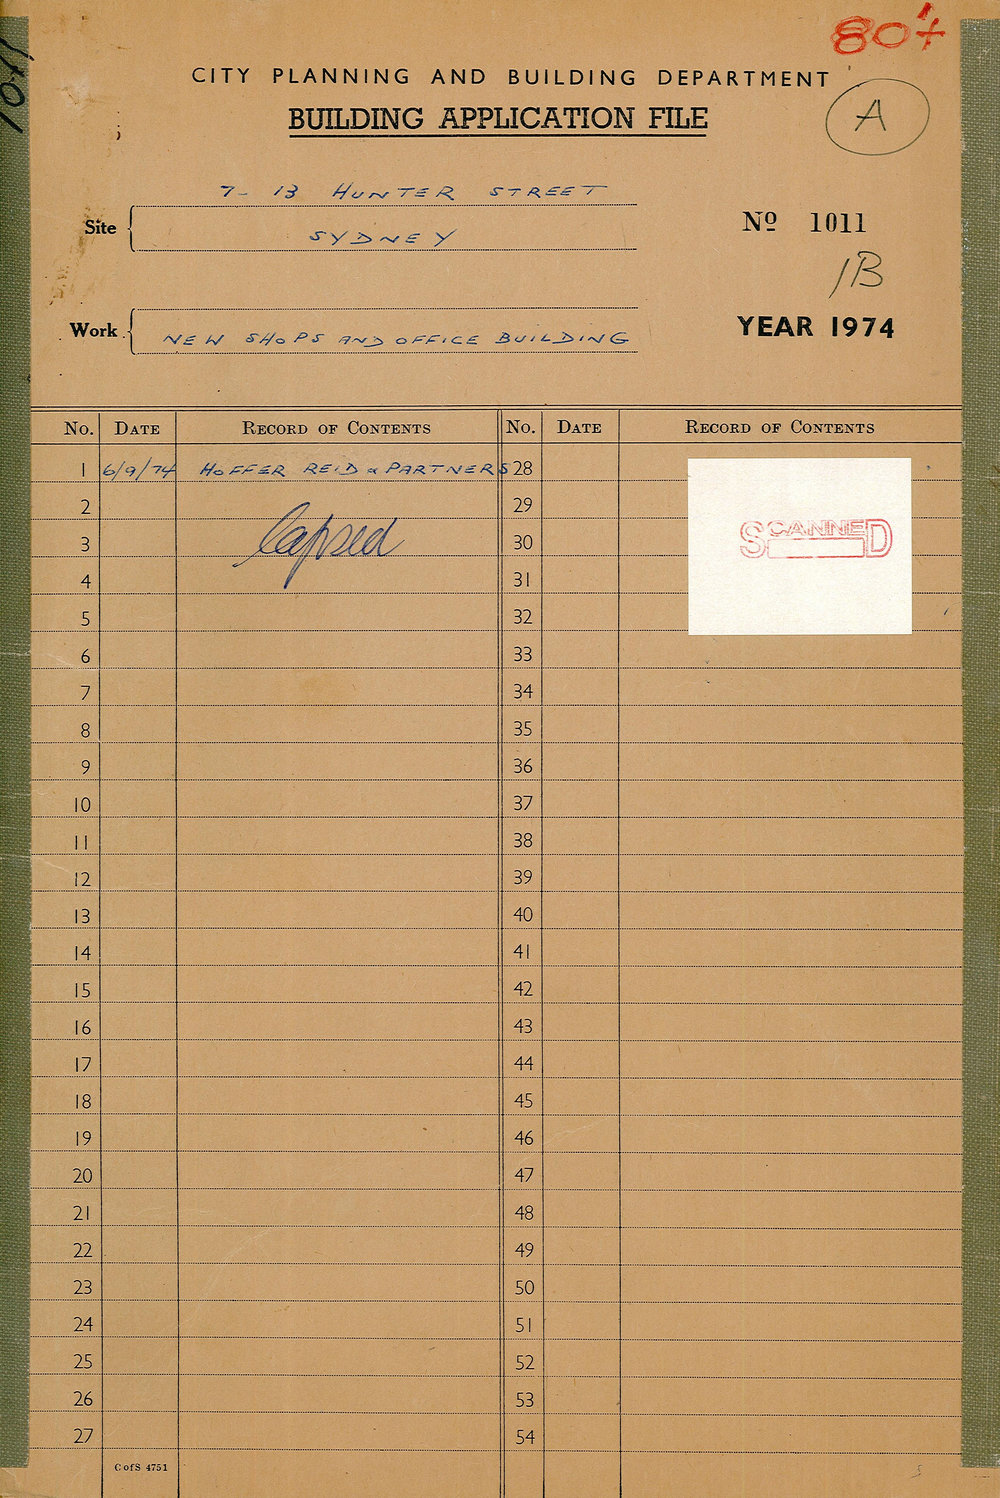 1011
80'4
CITY PLANNING AND BUILDING DEPARTMENT
BUILDING APPLICATION FILE
A
Site
7-13 HUNTER STREET
SYDNEY
Nº 1011
1B
Work
NEW SHOPS AND OFFICE BUILDING
YEAR 1974
No. DATE RECORD OF CONTENTS No. DATE RECORD OF CONTENTS
1 6/9/74 HOFFER REID & PARTNERS 28
SCANNED
2 29
lapsed
3 30
4 31
5 32
6 33
7 34
8 35
9 36
10 37
11 38
12 39
13 40
14 41
15 42
16 43
17 44
18 45
19 46
20 47
21 48
22 49
23 50
24 51
25 52
26 53
27 54
C of S 4751